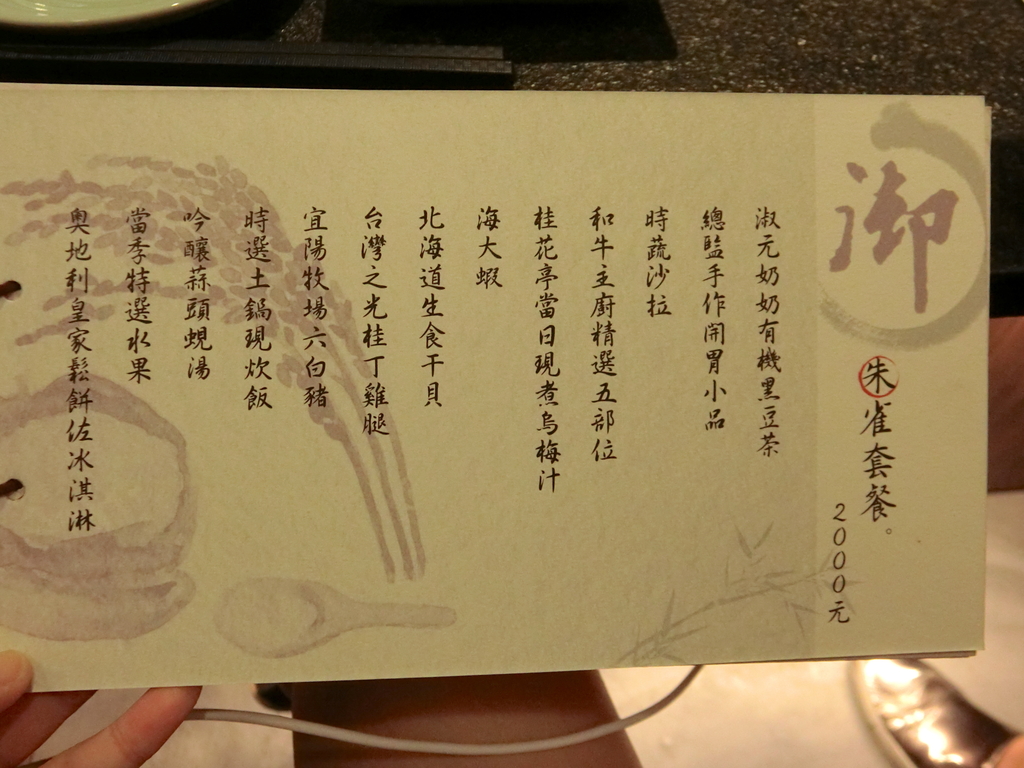 御
朱雀套餐。
2000元
淑元奶奶有機黑豆茶
總監手作開胃小品
時蔬沙拉
和牛主廚精選五部位
桂花亭當日現煮烏梅汁
海大蝦
北海道生食干貝
台灣之光桂丁雞腿
宜陽牧場六白豬
時選土鍋現炊飯
吟釀蒜頭蜆湯
當季特選水果
奧地利皇家鬆餅佐冰淇淋